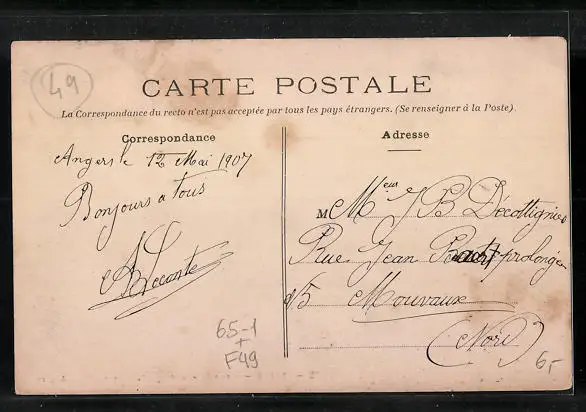 49
CARTE POSTALE
La Correspondance du recto n'est pas acceptée par tous les pays étrangers. (Se renseigner à la Poste).
Correspondance
Angers le 12 Mai 1907
Bonjours a tous
A Leconte
65-1
+
F49
Adresse
M Mr J B Décottignies
Rue Jean Bart prolongée
Mouvaux
(Nord)
6,-